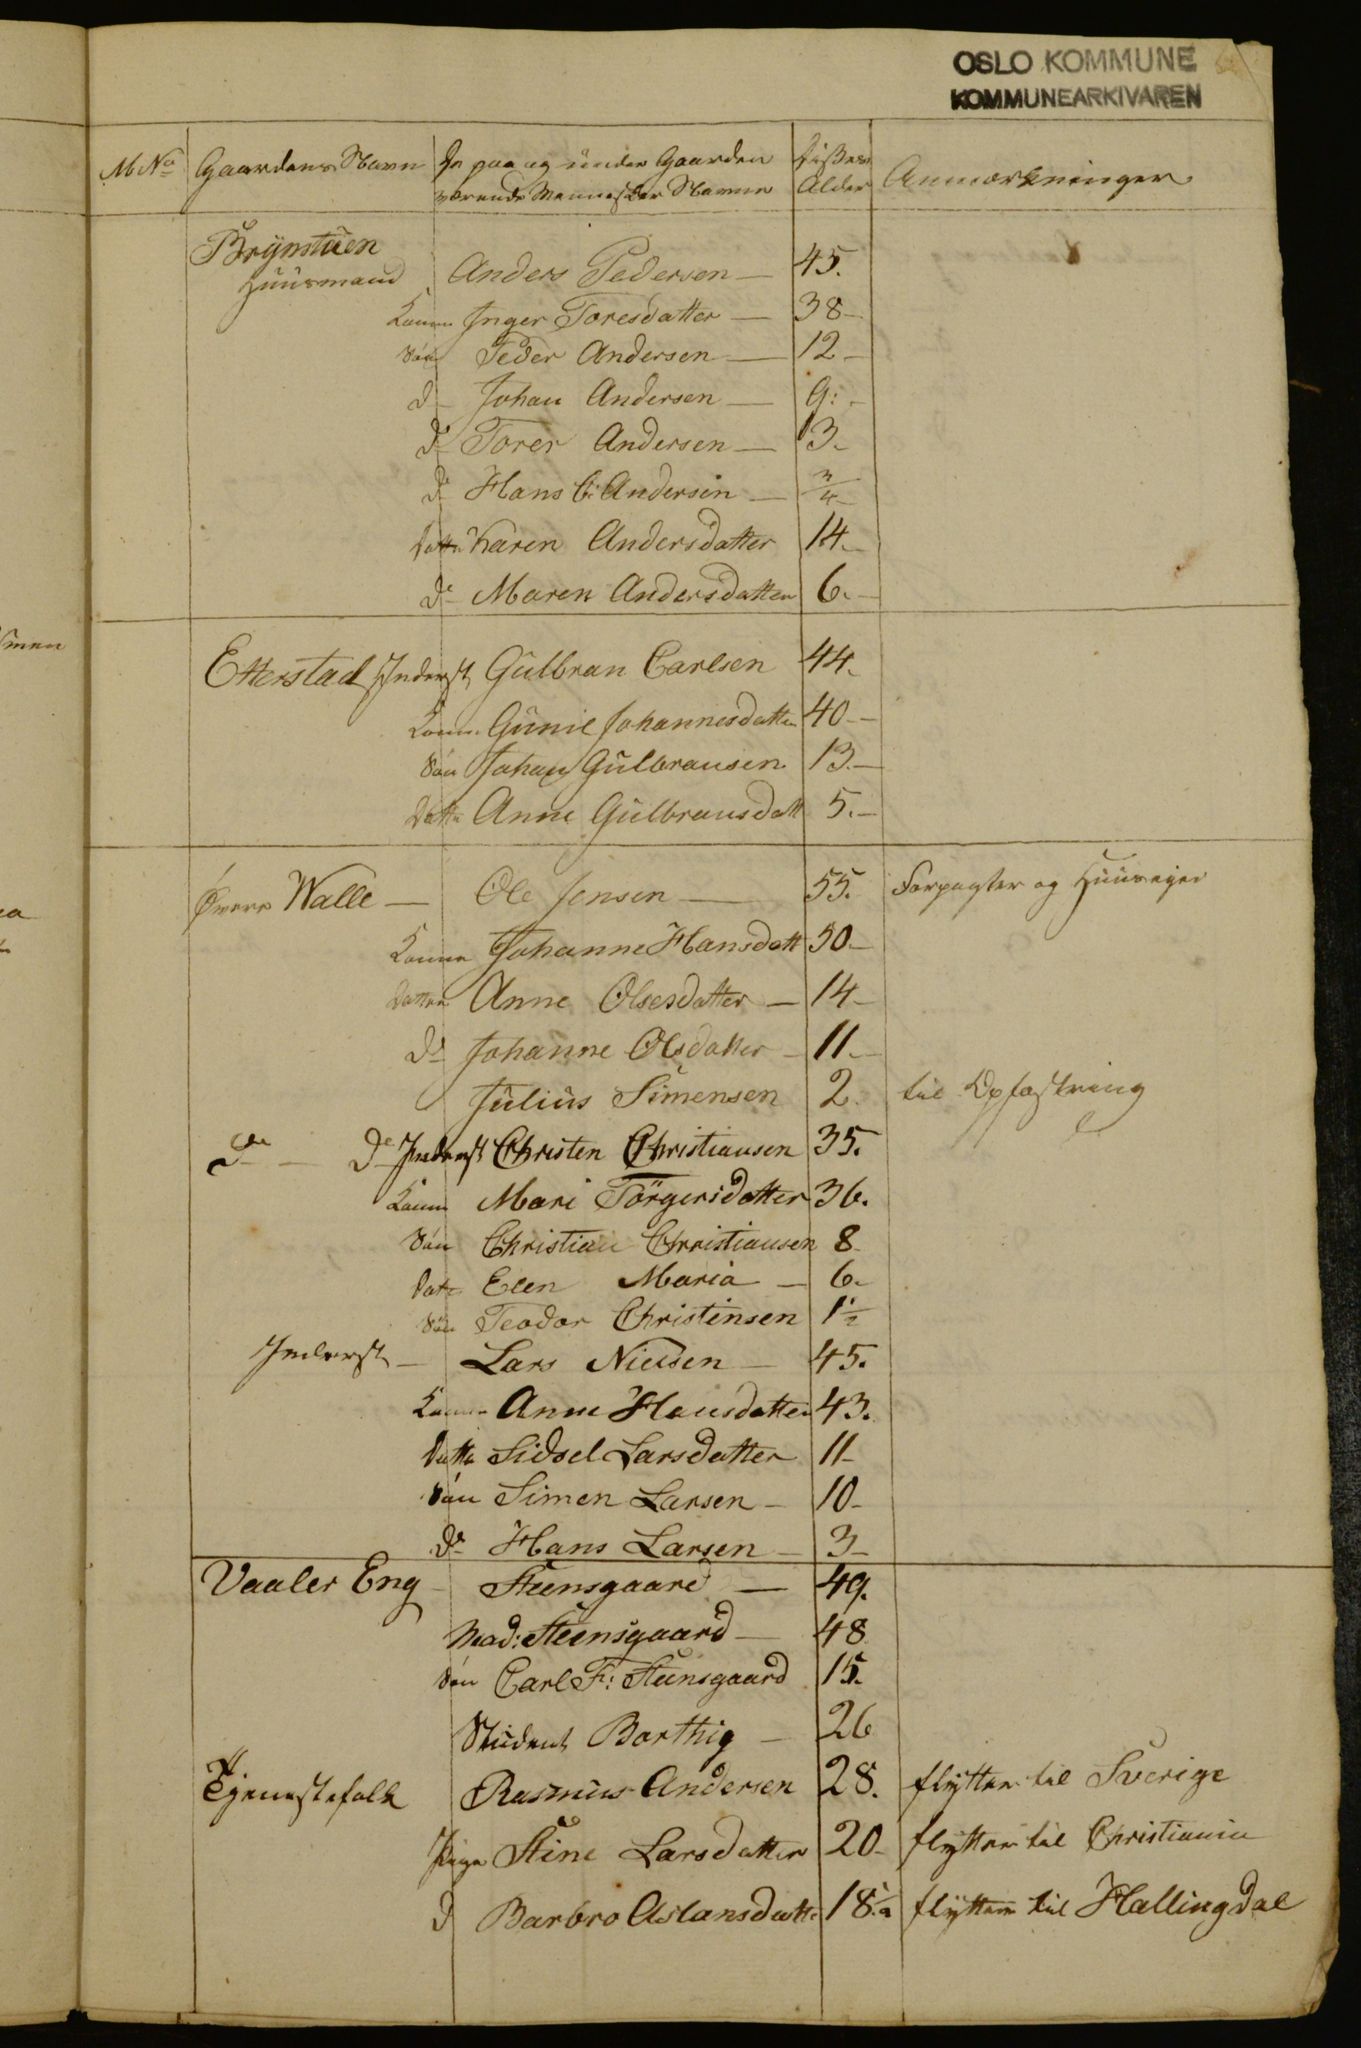 OSLO KOMMUNE
KOMMUNEARKIVAREN
MNo Gaardens Navn De paa og under Gaarden Disses Anmærkninger
værende Menneskers Navne Alder
Brÿnstuen
Huusmand Anders Pedersen — 45.
Konen Inger Toresdatter — 38 —
Søn Peder Andersen — 12 —
do Johan Andersen — 9: —
do Torer Andersen — 3. —
do Hans C: Andersen — 3/4
Datter Karen Andersdatter 14. —
do Maren Andersdatter 6. —
Etterstad Inderst Gulbran Carlsen 44.
Konen Gunil Johannesdatter 40 —
Søn Johan Gulbransen 13. —
Datter Anne Gulbransdatt 5. —
Øvere Walle — Ole Jensen — 55. Forpagter og Huuseyer
Konen Johanne Hansdatt 50 —
Datter Anne Olsesdatter — 14 —
do Johanne Olsdatter — 11. —
Julius Simensen 2. til Opfostring
do — do Inderst Christen Christiansen 35.
Konen Mari Törgersdatter 36.
Søn Christian Christiansen 8
Datr Elen Maria — 6. —
Søn Teodor Christensen 1 1/2
Inderst — Lars Nielsen — 45.
Konen Anne Hansdatter 43.
Datter Sidsel Larsdatter 11 —
Søn Simen Larsen — 10 —
do Hans Larsen — 3 —
Vaaler Eng — Steensgaard — 49.
Mad: Steensgaard — 48
Søn Carl F: Steensgaard 15.
Student Barthig — 26
Tjenestefolk Rasmus Andersen 28. flytter til Sverige
Pige Stine Larsdatter 20 — flytter til Christiania
d Barbro Aslansdattr 18 1/2 flytter til Hallingdal